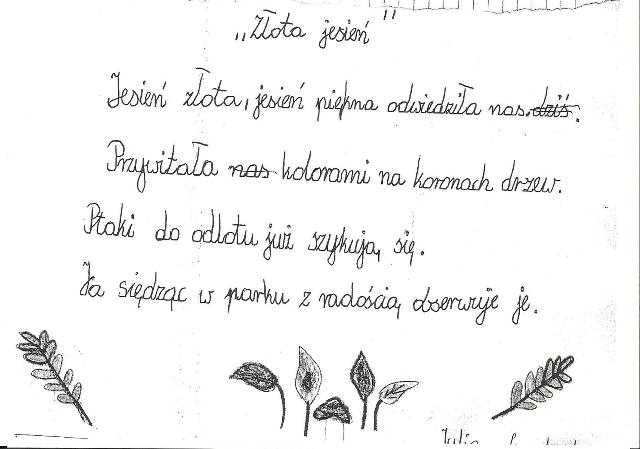 „Złota jesień”
Jesień złota, jesień piękna odwiedziła nas dziś.
Przywitała nas kolorami na koronach drzew.
Ptaki do odlotu już szykują się.
Ja siędząc w parku z radością obserwuje je.
Julia